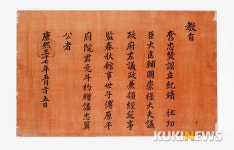 教旨
奮忠贊謨立紀靖 社功
臣大匡輔國崇祿大夫議
政府左議政兼領經筵事
監春秋館事世子傅原平
府院君元斗杓贈諡忠翼
公者
康熙 十七年五月十五日
KUKINEWS